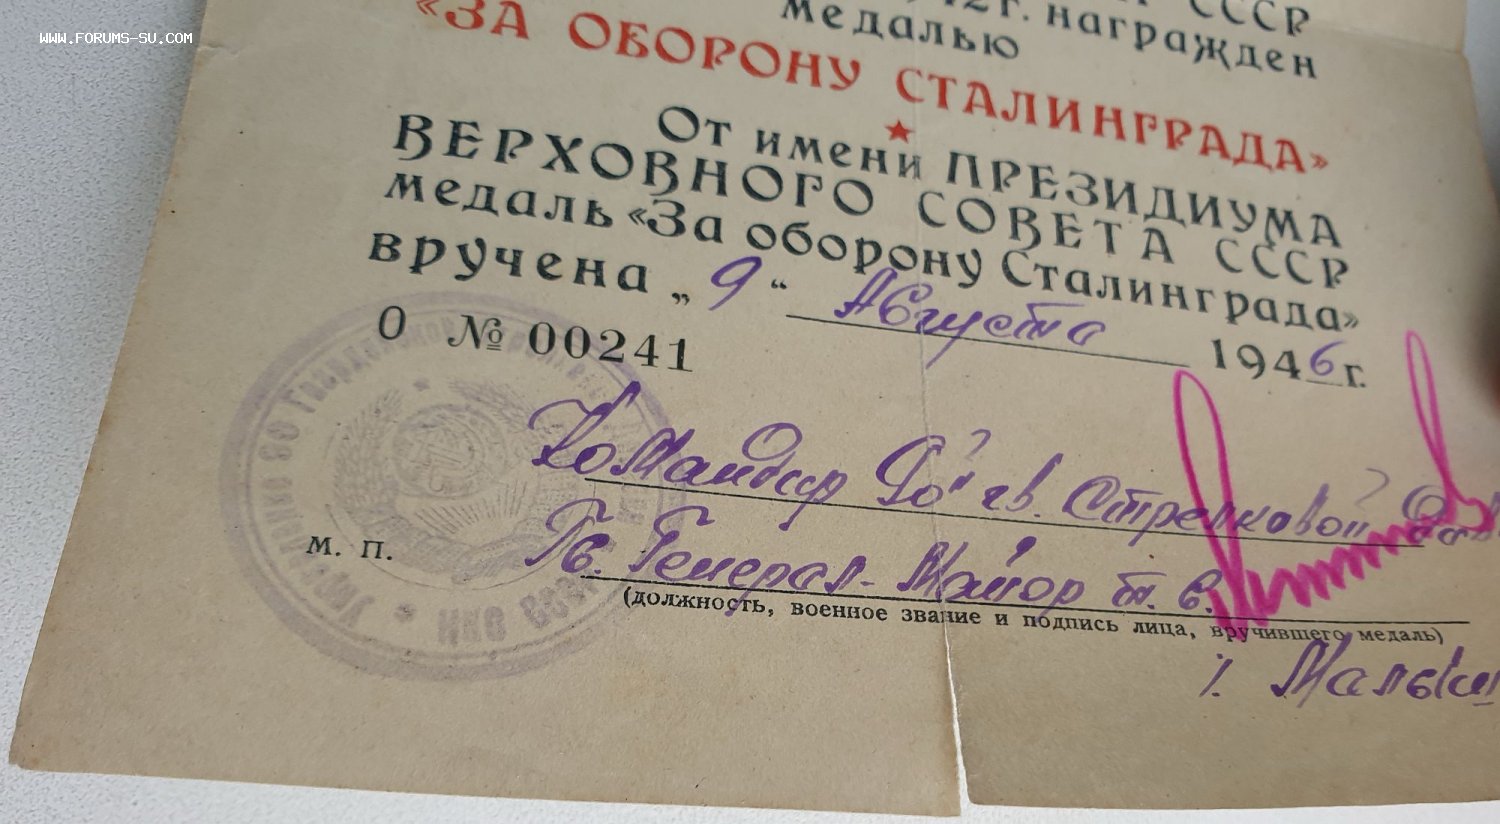 WWW.FORUMS-SU.COM
СССР
г. награжден
медалью
«ЗА ОБОРОНУ СТАЛИНГРАДА»
От имени ПРЕЗИДИУМА
ВЕРХОВНОГО СОВЕТА СССР
медаль «За оборону Сталинграда»
вручена „ 9 “ Августа 1946 г.
О № 00241
Командир гв. Стрелковой
Гв. Генерал-Майор т. в.
М. П.
(должность, военное звание и подпись лица, вручившего медаль)
НКО СССР